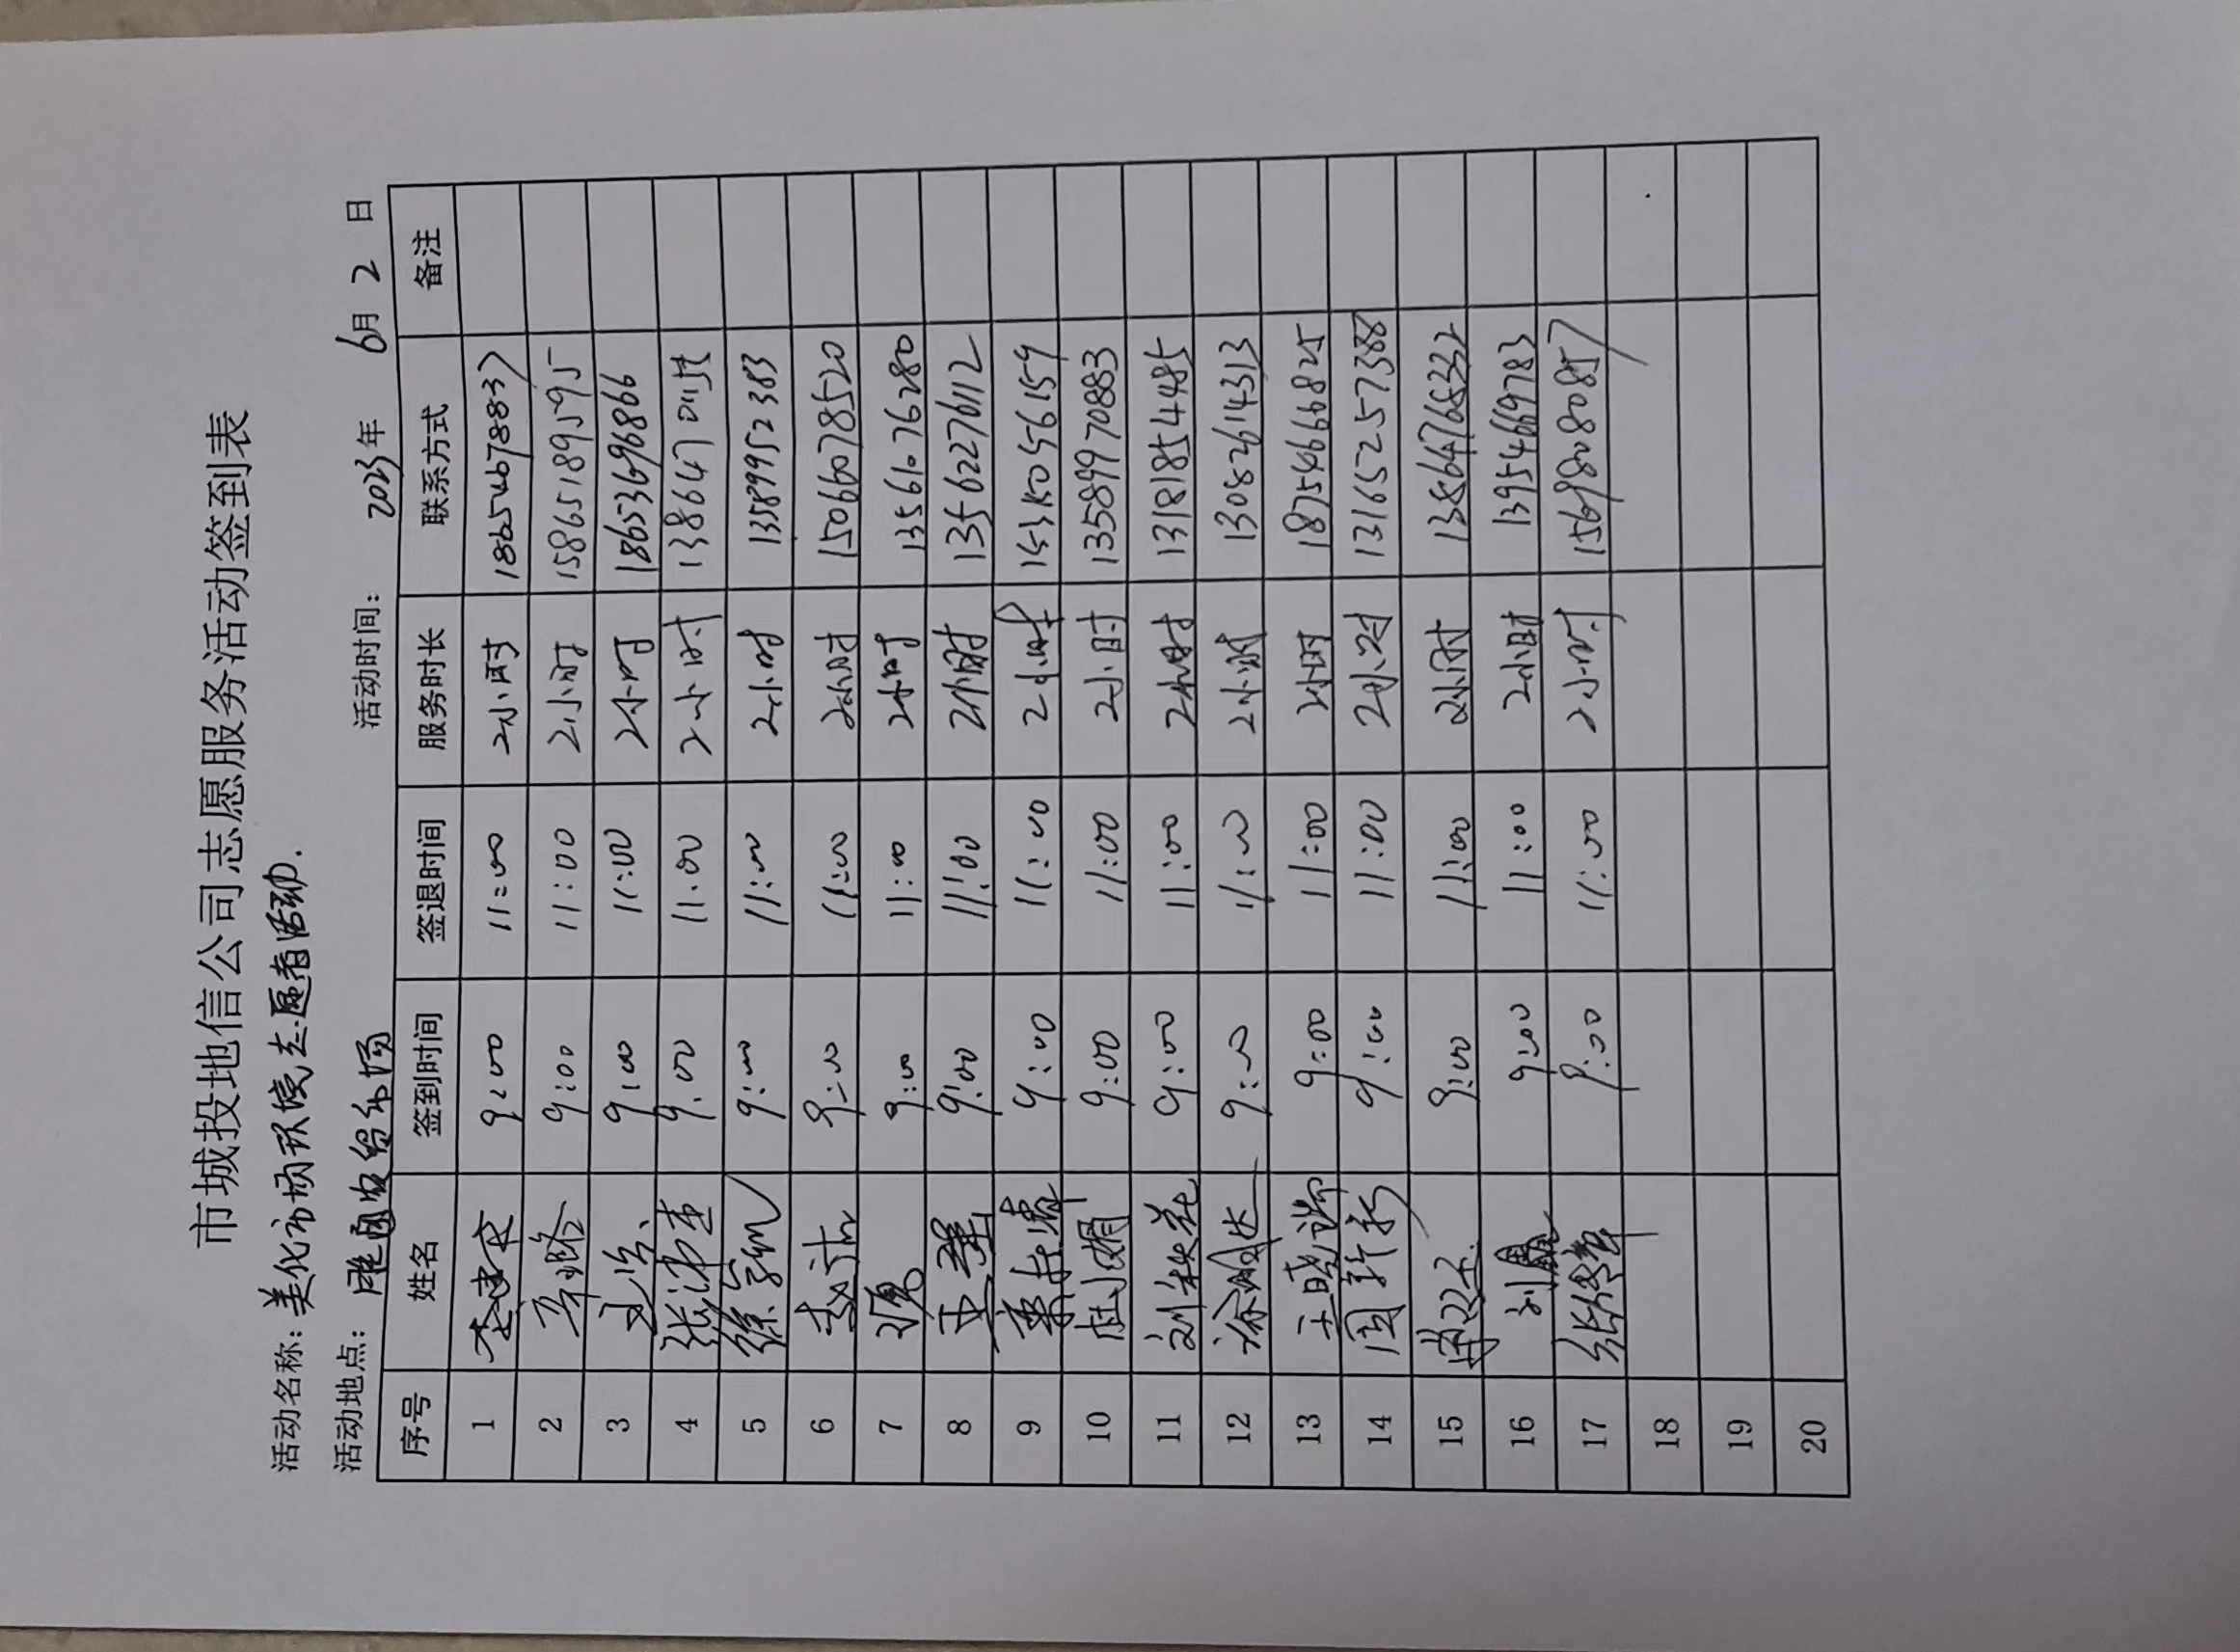 市城投地信公司志愿服务活动签到表
活动名称: 美化市场环境志愿者活动.
活动地点: 活动时间: 2023年 6月 2 日
序号 姓名 签到时间 签退时间 服务时长 联系方式 备注
1 9:00 11:00 2小时 18654678837
2 9:00 11:00 2小时 15865189595
3 9:00 11:00 2小时 18653696866
4 9:00 11:00 2小时
5 徐 9:00 11:00 2小时 13589952383
6 9:00 11:00 2小时 15066078520
7 9:00 11:00 2小时 13561076280
8 王强 9:00 11:00 2小时 13562276112
9 9:00 11:00 2小时
10 武娟 9:00 11:00 2小时 13589970883
11 刘秩花 9:00 11:00 2小时 13181854485
12 9:00 11:00 2小时 13082614313
13 王晓 9:00 11:00 2小时 18754666825
14 周新 9:00 11:00 2小时 13165257388
15 9:00 11:00 2小时 13864765332
16 刘晶 9:00 11:00 2小时 13954669783
17 9:00 11:00 2小时 15698080857
18
19
20